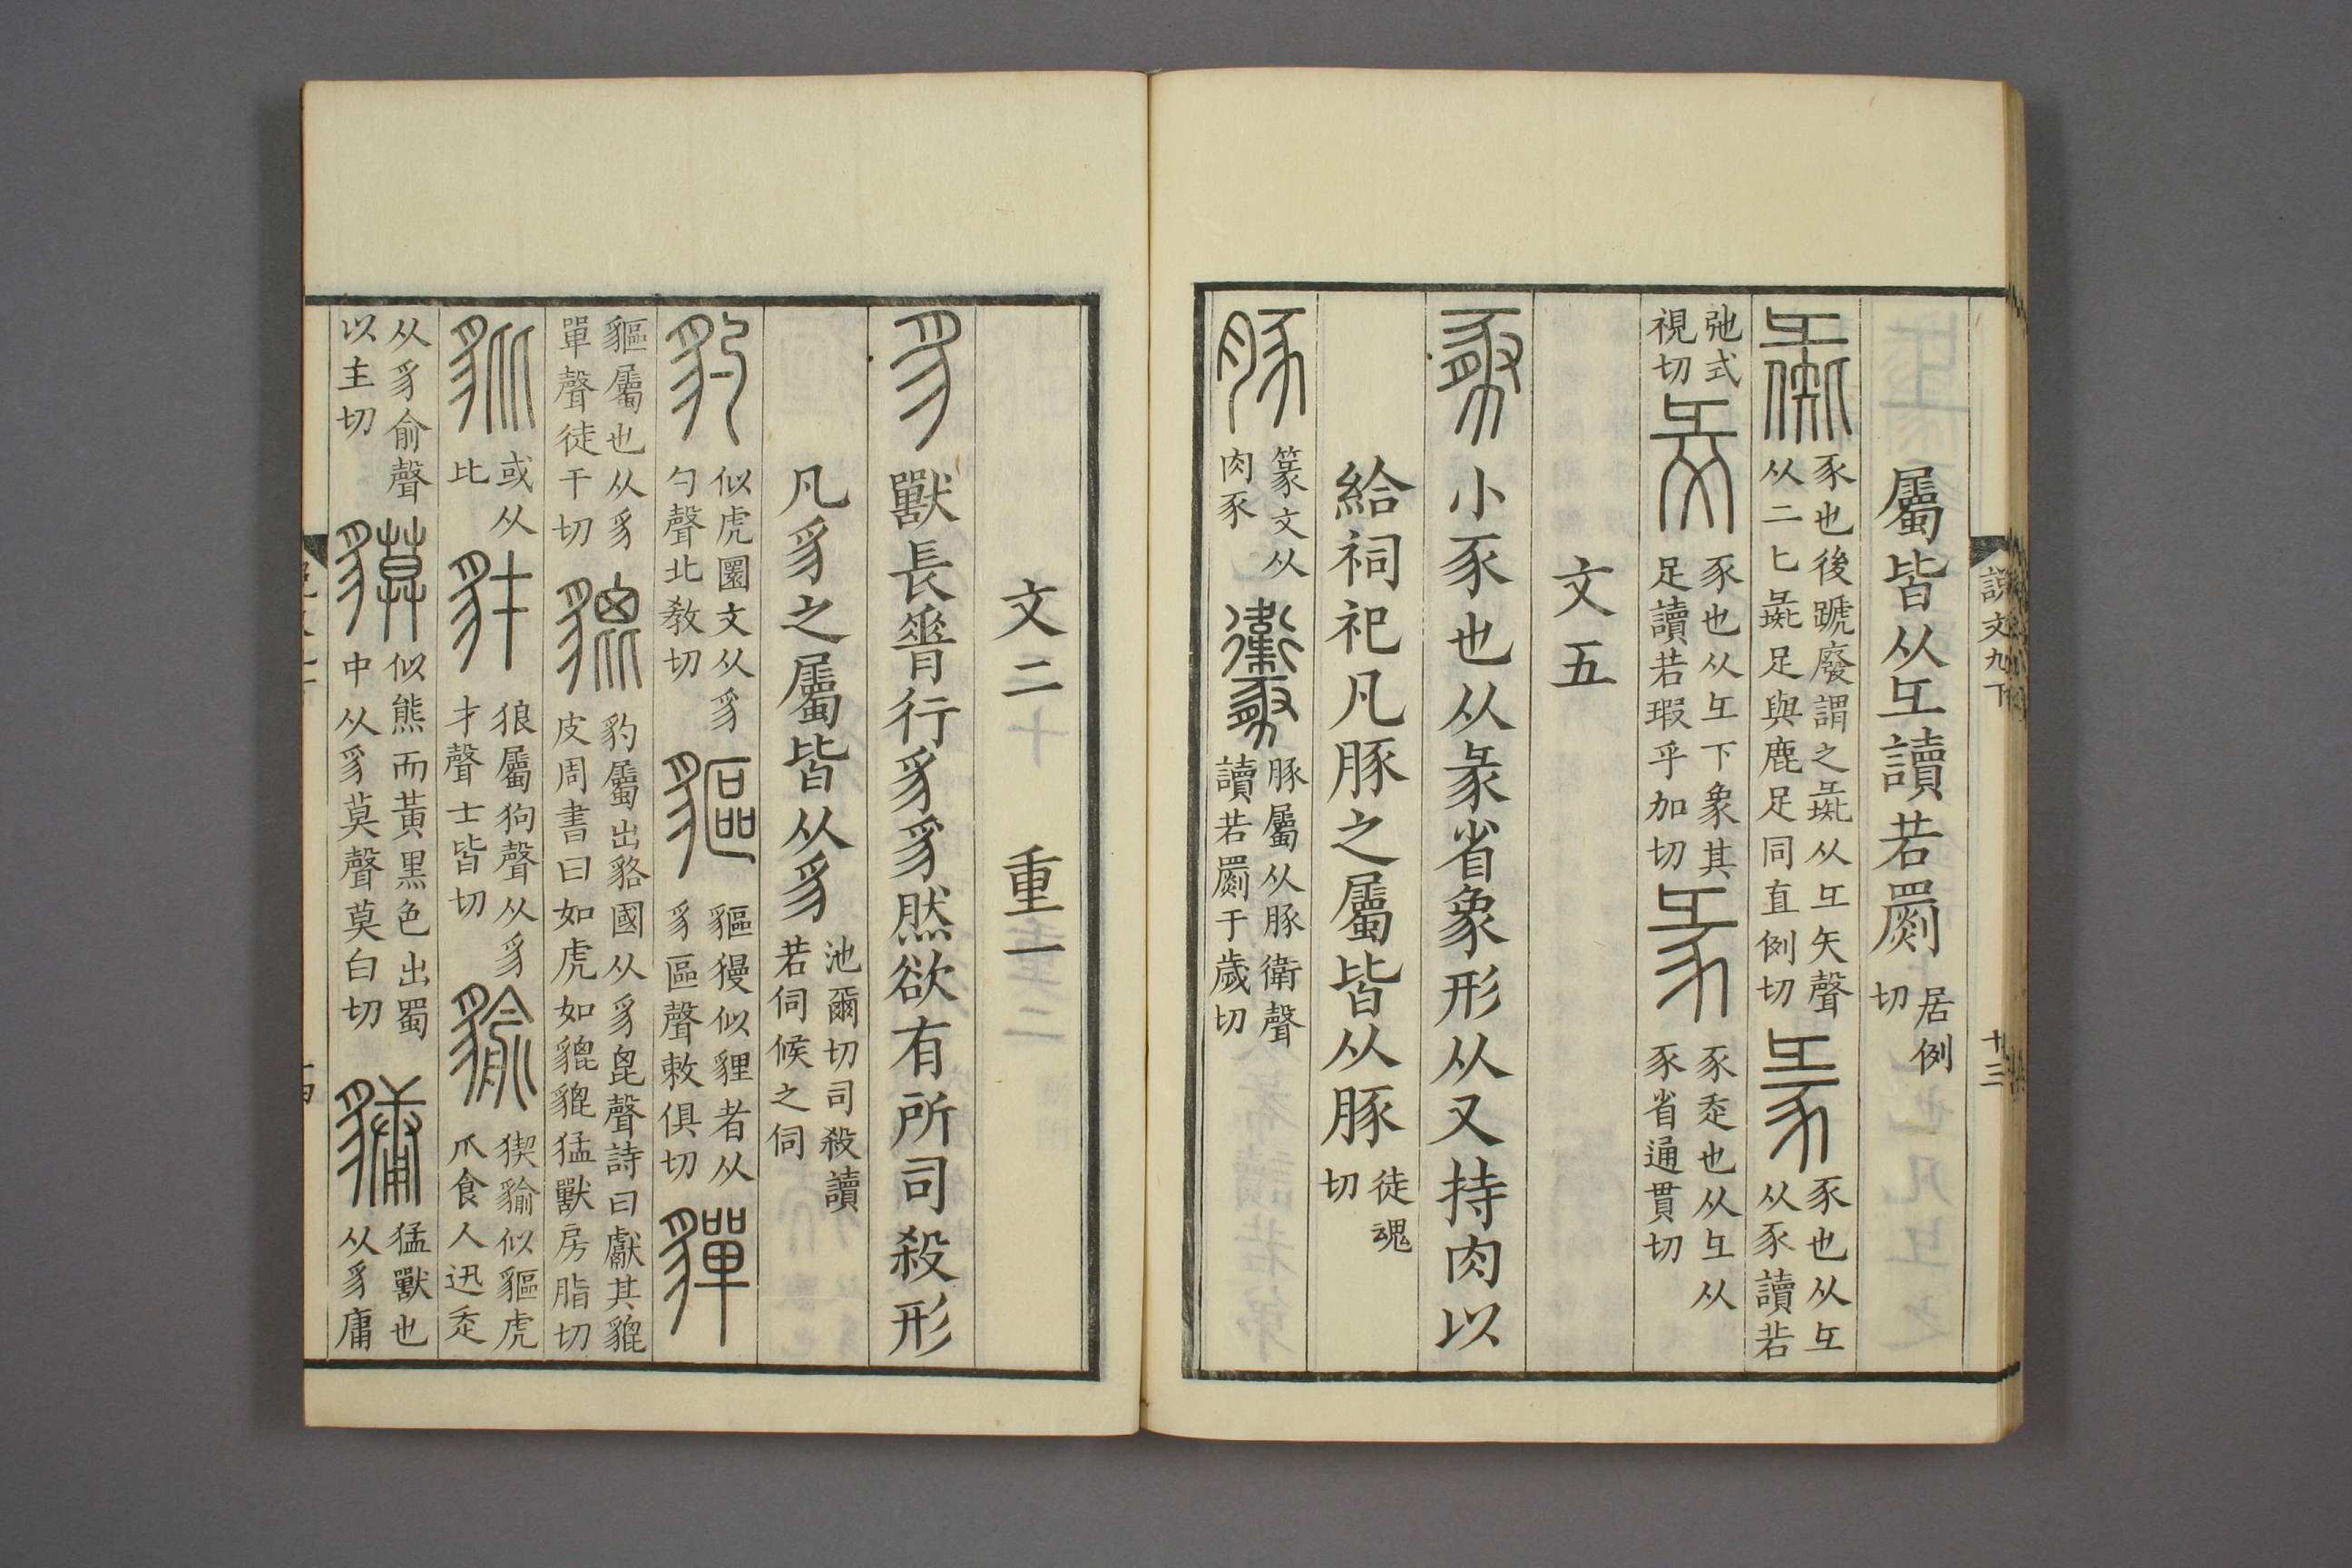 說文九下
十三
屬皆从彑讀若罽居例切
彘豕也後蹏廢謂之彘从彑矢聲从二匕彘足與鹿足同直例切
㣇豕也从彑从豕讀若弛式視切
彑豕也从彑下象其足讀若瑕乎加切
彖豕走也从彑从豕省通貫切
文五
豚小豕也从彖省象形从又持肉以
給祠祀凡豚之屬皆从豚徒魂切
豚篆文从肉豕
豚屬从豚衛聲讀若罽于歲切
文二 重一
豸獸長𦟝行豸豸然欲有所司殺形
凡豸之屬皆从豸池爾切司殺讀若伺候之伺
豹似虎圜文从豸勺聲北教切
貙貙獌似貍者从豸區聲敕俱切
貚貙屬也从豸單聲徒干切
貔豹屬出貉國从豸𣬉聲詩曰獻其貔皮周書曰如虎如貔貔猛獸房脂切
豼或从比
豺狼屬狗聲从豸才聲士皆切
貐猰貐似貙虎爪食人迅走从豸俞聲以主切
貘似熊而黃黑色出蜀中从豸莫聲莫白切
貓猛獸也从豸庸